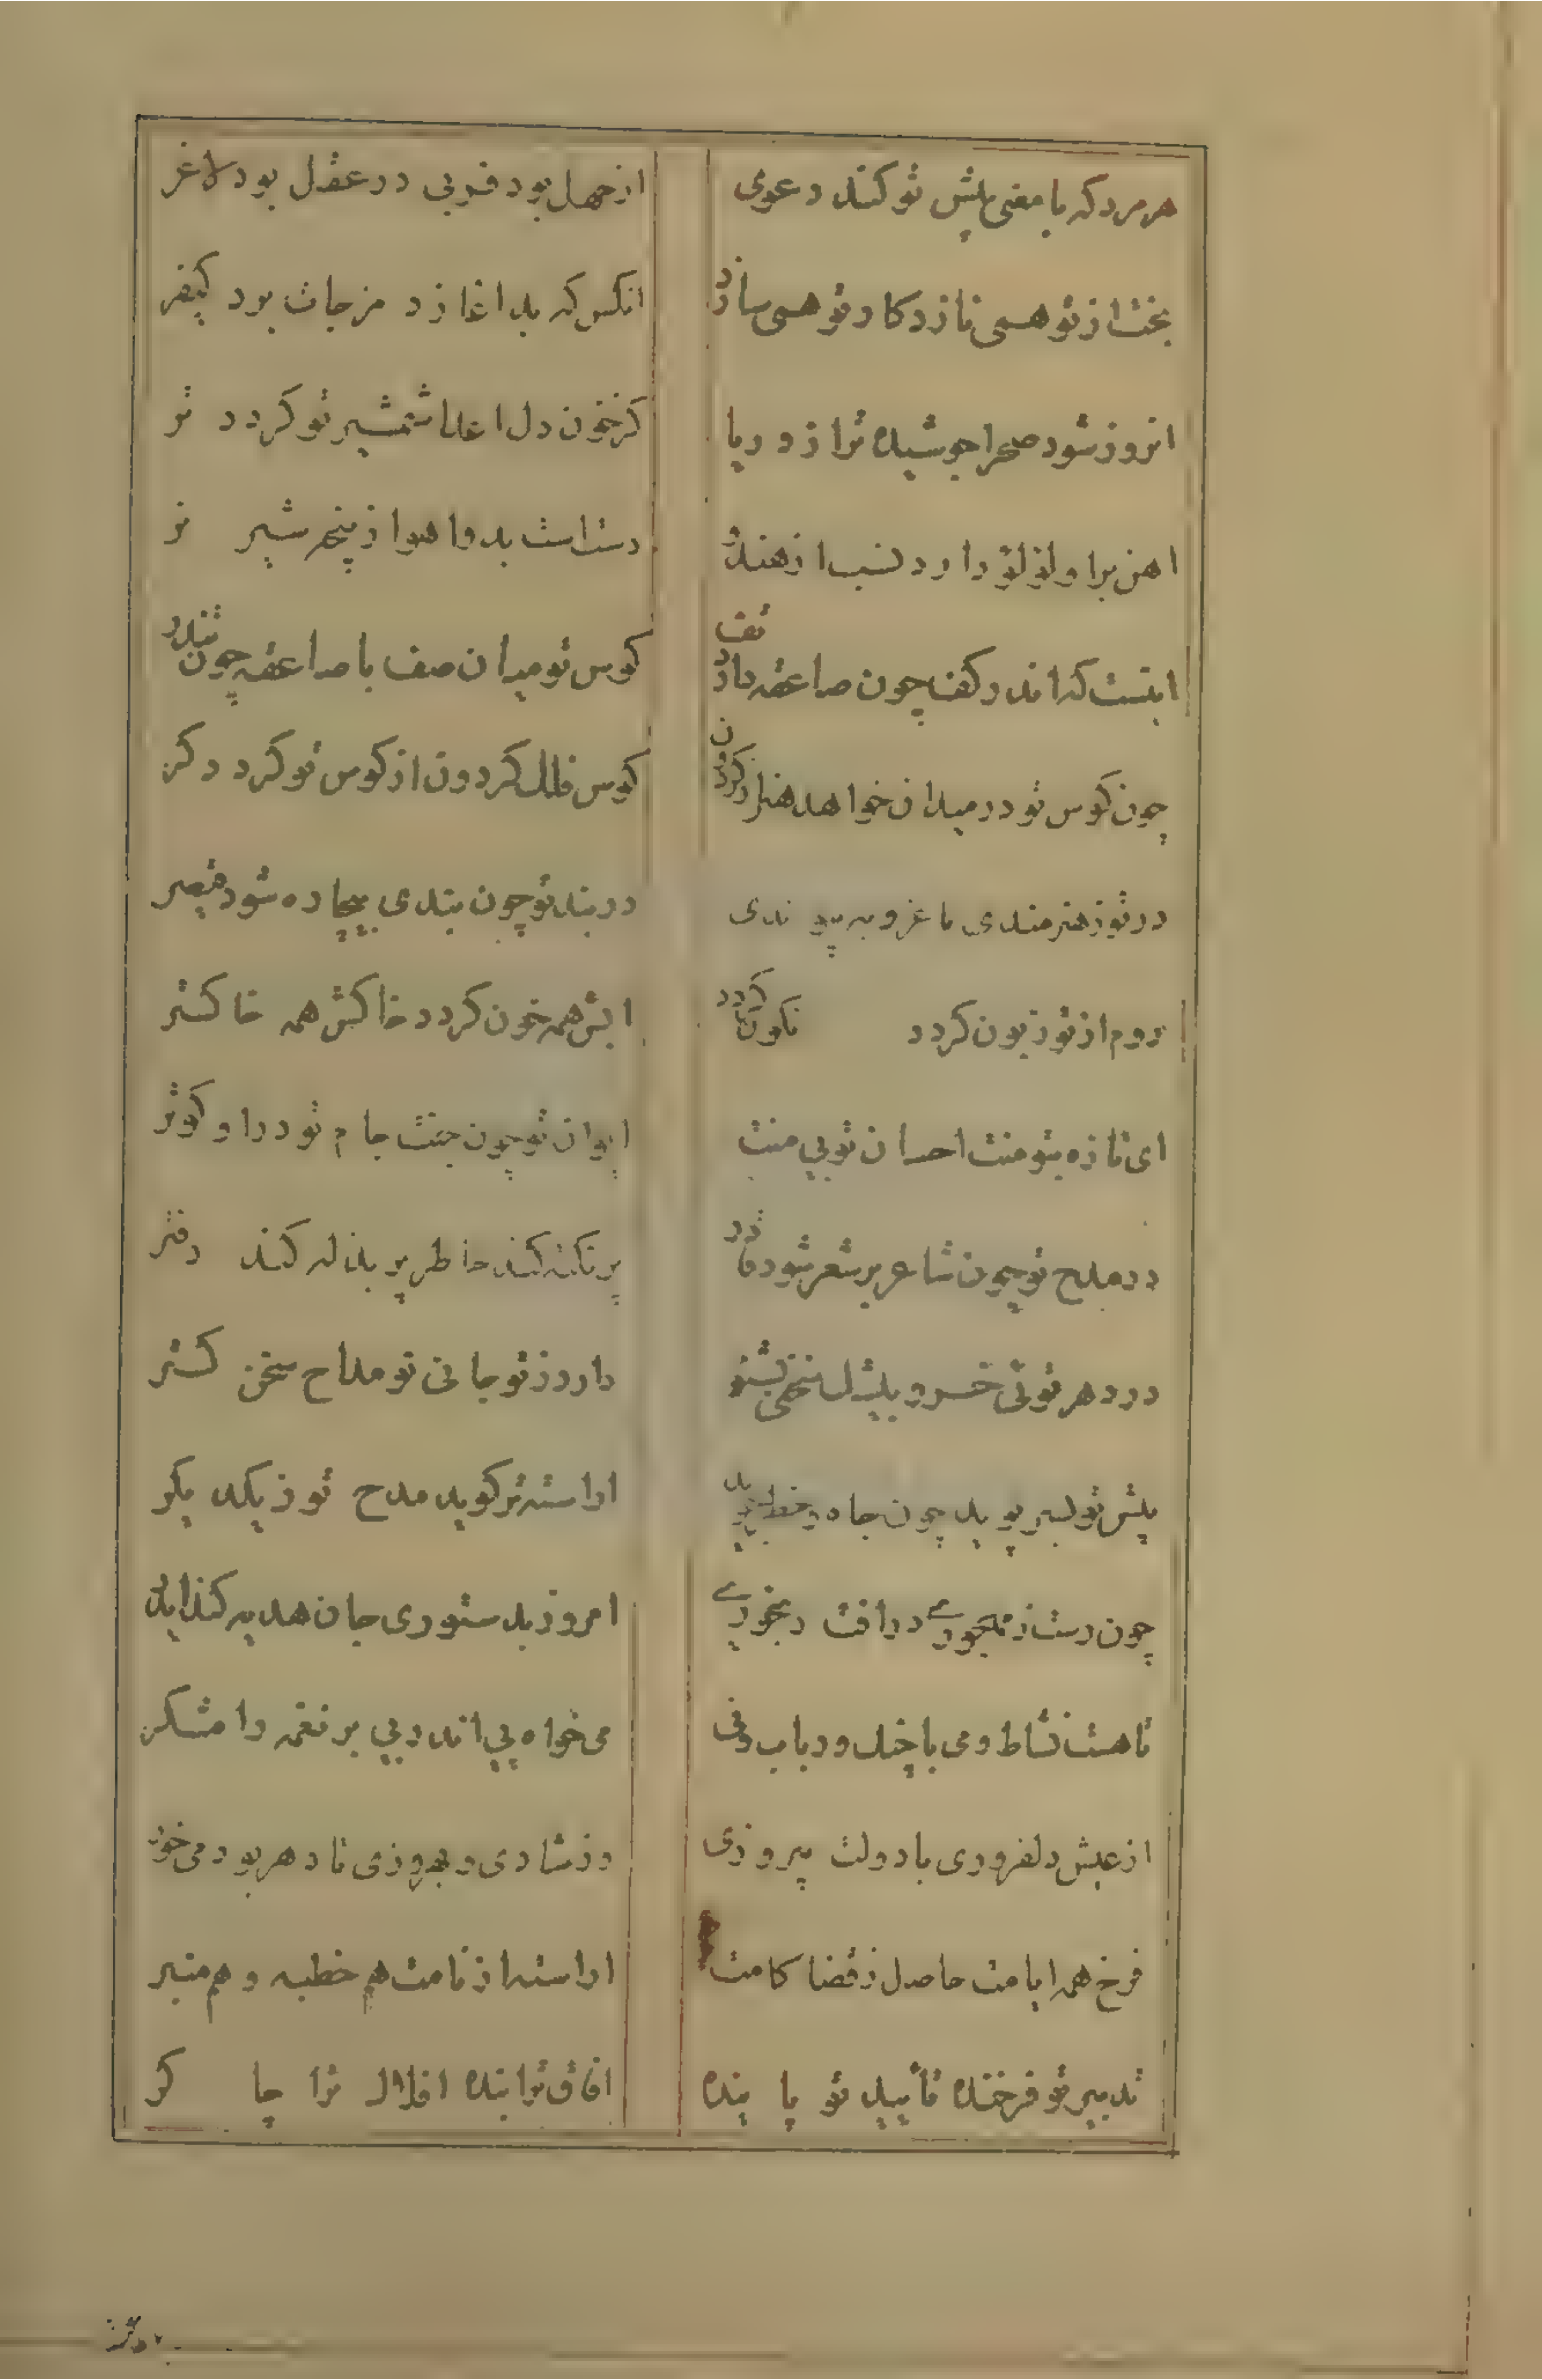 هر مرد که با معنی پیش تو کند دعوی
از جهل بود فربی در عقل بود لاغر
بخت از تو همی نازد کار تو همی سازد
انکس که بد اغازد مزجاث بود کیفر
انروز شود صحرا جوشیده تر از دریا
کز خون دل اعدا شمشیر تو کردد تر
اهن برا و لؤلؤ دارد نسب از هندو
دست است بد و اهوا از پنجه شیر نر
اینست که اندر کف چون صاعقه دارد تف
کوس تو میدان صف با صاعقه چون تندر
چون کوس تو در میدان خواهد هنر از کردون
کوس فلک کردون از کوس تو کردد کر
در تو ز هنرمندی ما غزو به پیوندی
در بند تو چون بندی بیچاره شود قیصر
روم از تو زبون کردد نکون کردد
ابش همه خون کردد خاکش همه خاکستر
ای تازه بتو منت احسان تو بی منت
ایوان تو چون جنت جام تو در او کوثر
در مدح تو چون شاعر بر شعر شود قادر
پر نکته کند خاطر پر بذله کند دفتر
در دهر توئی خسرو بیدل سخنی بشنو
دارد ز تو جانی نو مداح سخن کستر
پیش تو بسر پوید چون جاه و خطر جوید
اراسته تر کوید مدح تو ز یکدیکر
چون دست ز رنجوری در افت رنجوری
امروز بدستوری جان هدیه کند ایدر
تا هست نشاط و می با چنک و رباب و نی
می خواه پی اندر پی بر نغمه رامشکر
از عیش دلفروزی با دولت پیروزی
در شادی و بهروزی تا دهر بود می خور
فرخ همه ایامت حاصل ز قضا کامت
اراسته از نامت هم خطبه و هم منبر
تدبیر تو فرخنده تأیید تو پاینده
افاق ترا بنده افلاک ترا چاکر